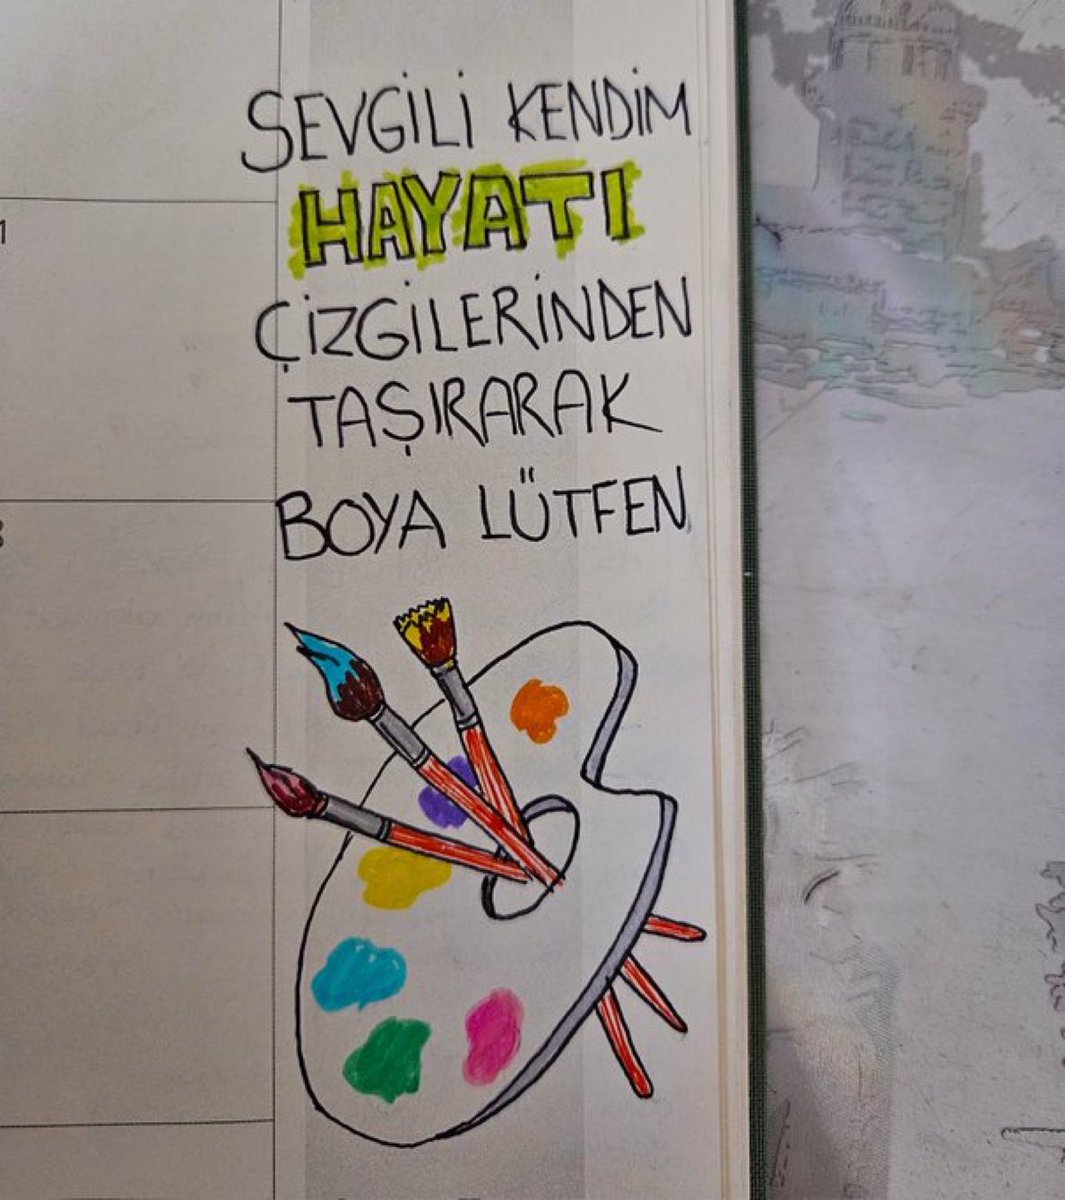 SEVGİLİ KENDİM
HAYATI
ÇİZGİLERİNDEN
TAŞIRARAK
BOYA LÜTFEN